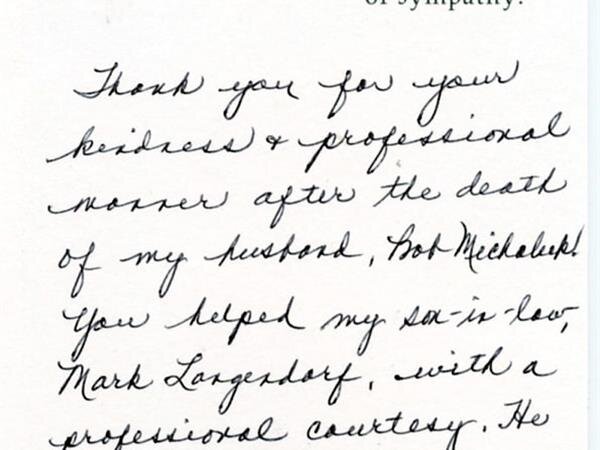 of sympathy.
Thank you for your
kindness & professional
manner after the death
of my husband, Bob Michaluk!
You helped my son-in-law,
Mark Langendorf, with a
professional courtesy. He